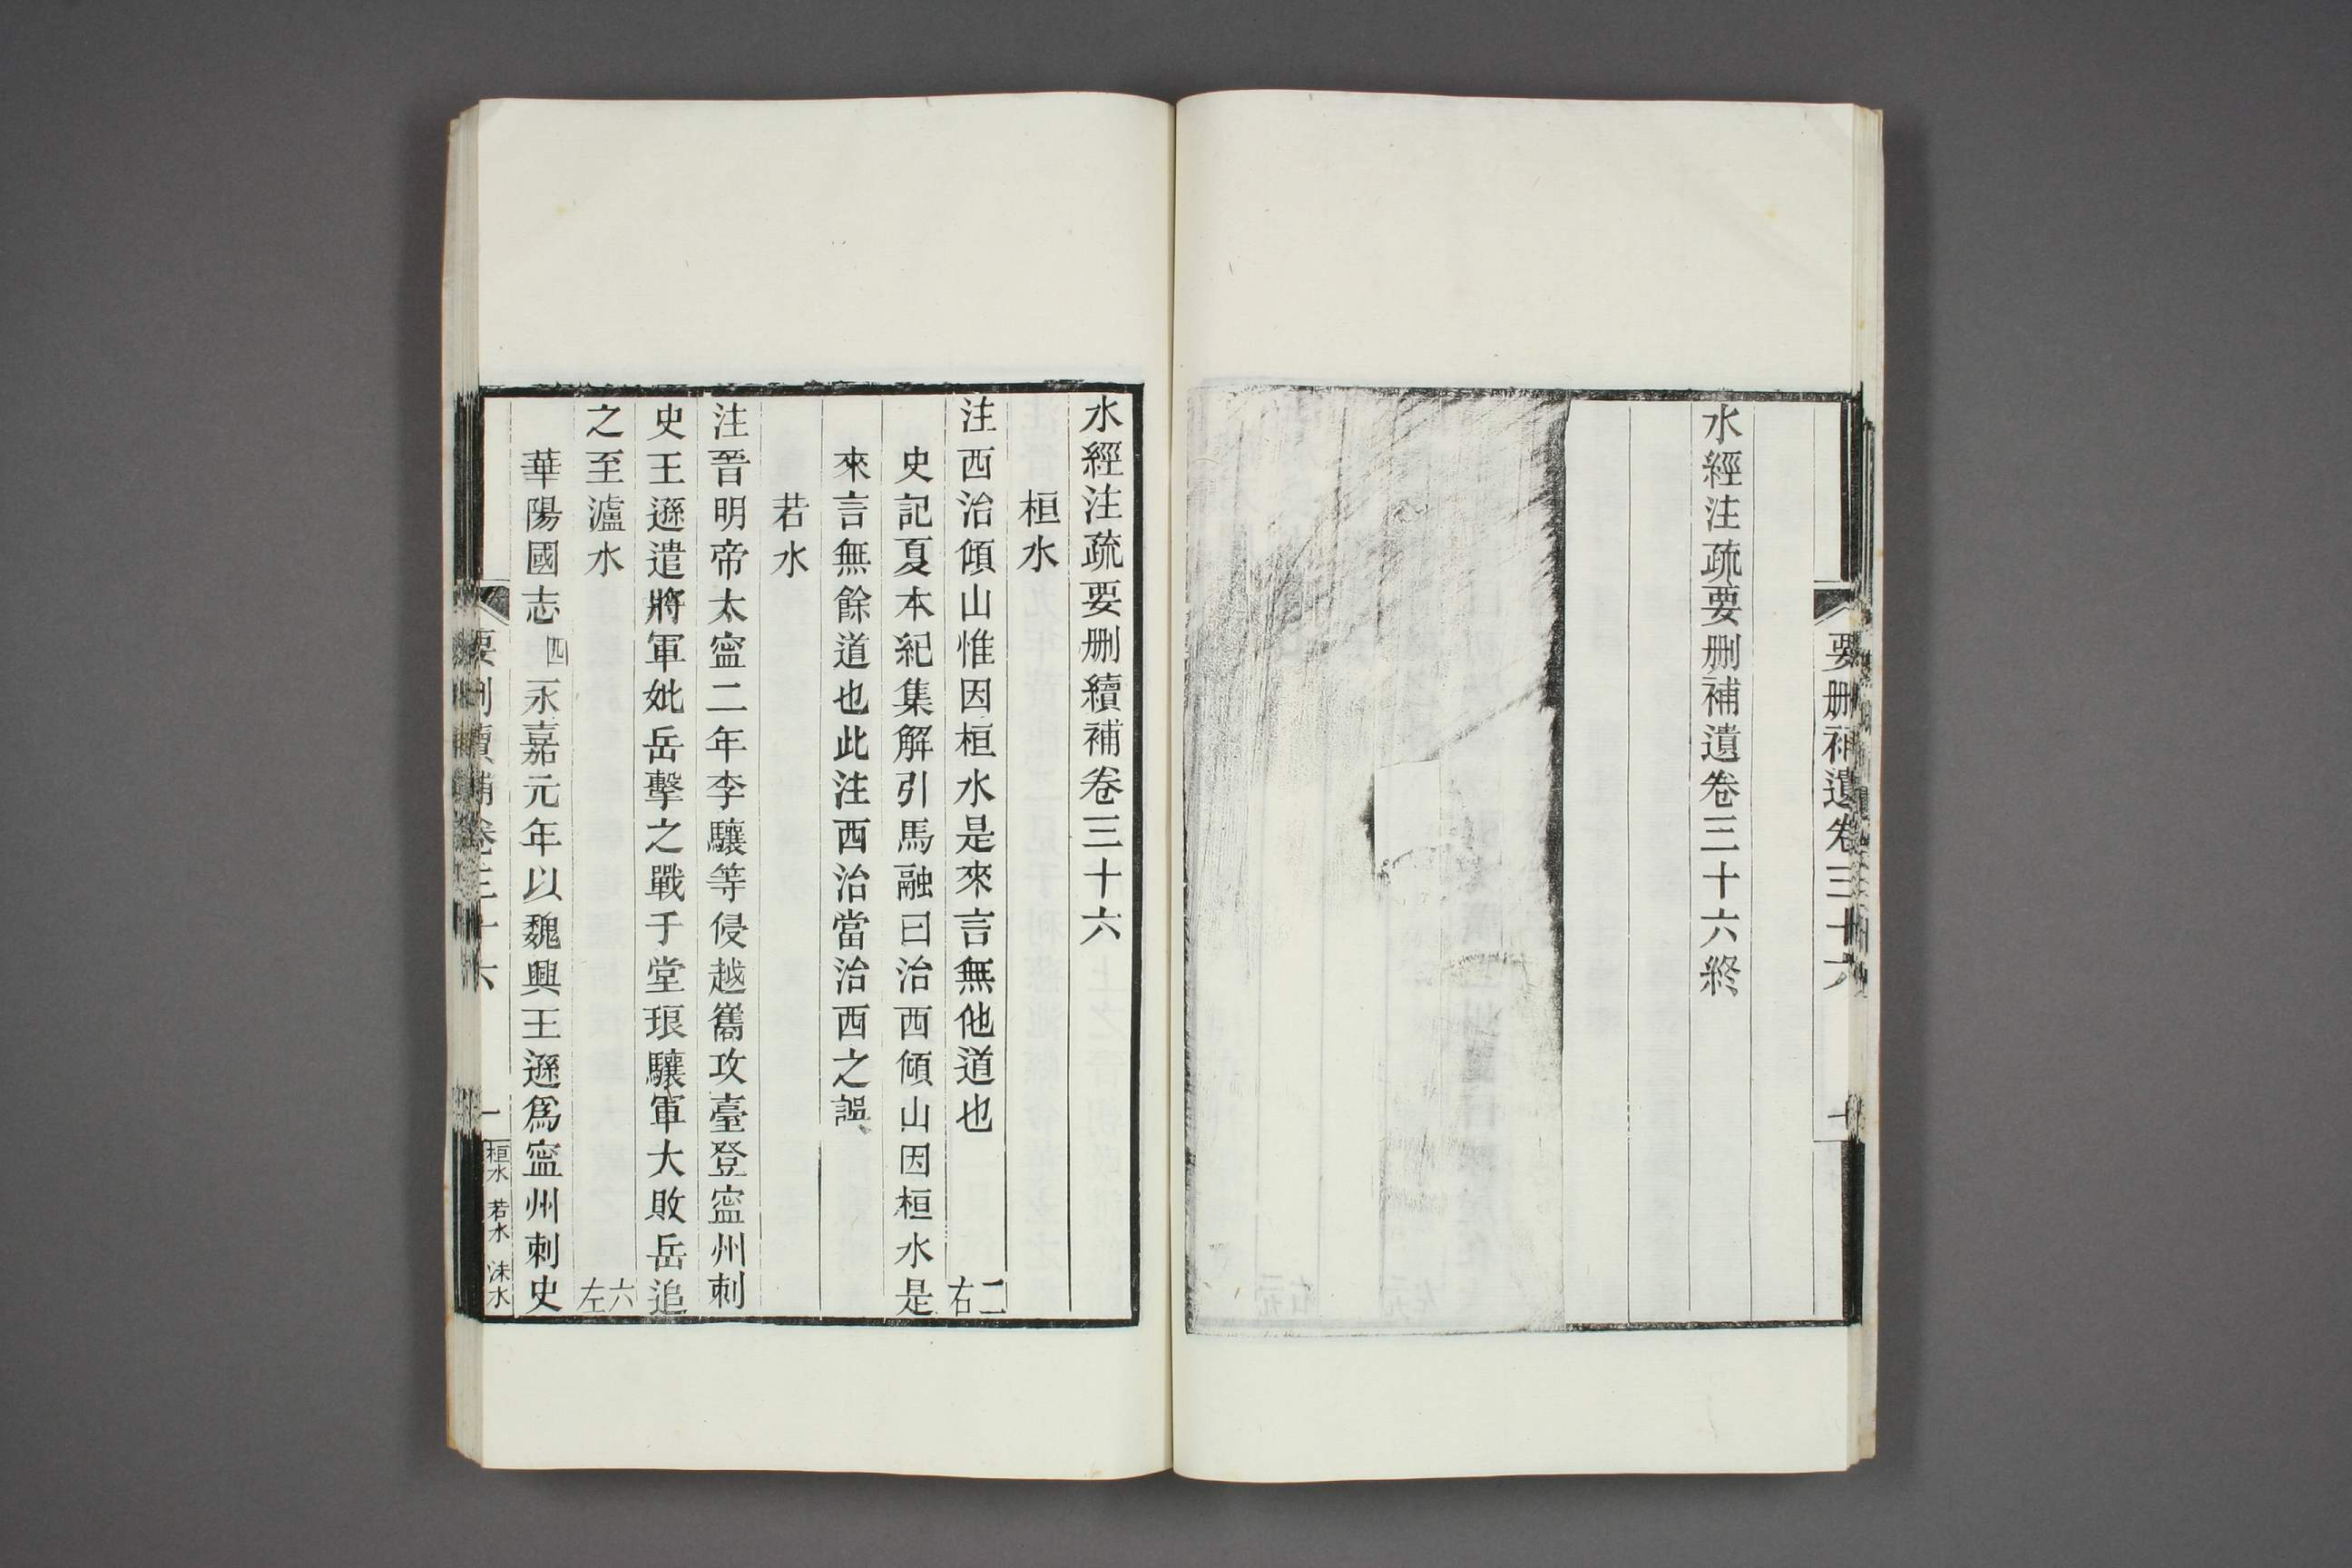 要删補遺卷三十六
十
水經注疏要删補遺卷三十六終
水經注疏要删續補卷三十六
桓水
注西治傾山惟因桓水是來言無他道也 二右
史記夏本紀集解引馬融曰治西傾山因桓水是
來言無餘道也此注西治當治西之誤
若水
注晉明帝太寍二年李驤等侵越巂攻臺登寍州刺
史王遜遣將軍姚岳擊之戰于堂琅驤軍大敗岳追
之至瀘水 六左
華陽國志四永嘉元年以魏興王遜爲寍州刺史
要删續補卷三十六
一
桓水 若水 沫水